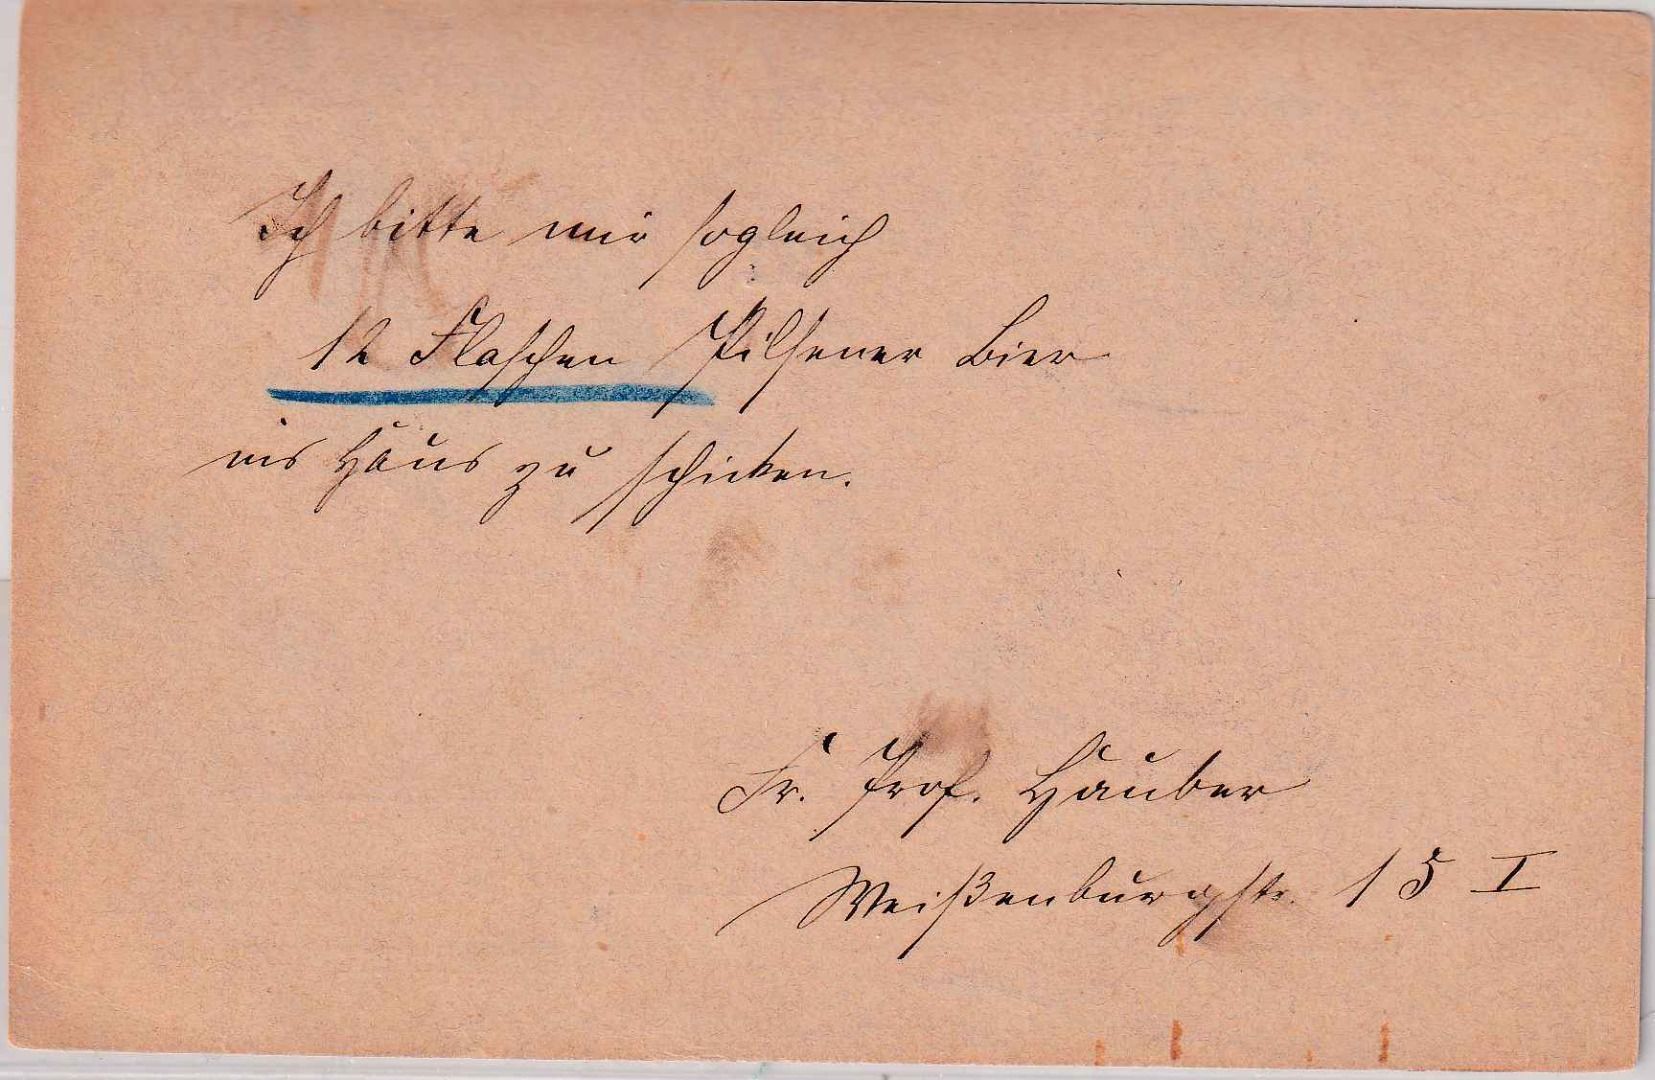 Ich bitte mir sogleich
12 Flaschen Pilsener Bier
ins Haus zu schicken.
Fr. Prof. Hauber
Weißenburgstr. 15 I